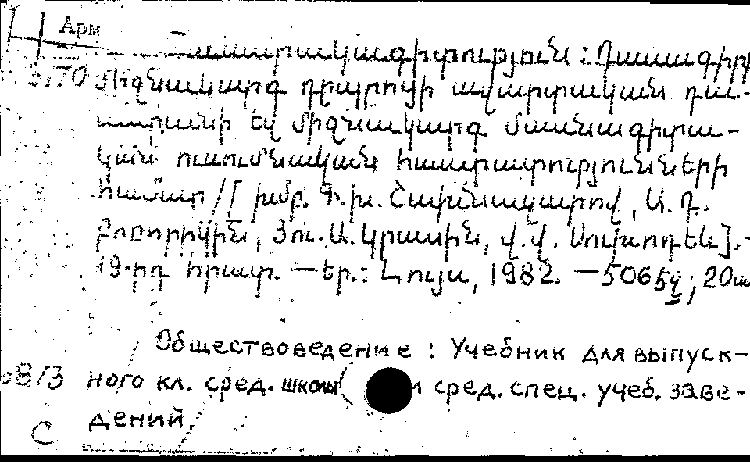 Арм
Հասարակագիտություն : Դասագիրք
3170 միջնակարգ դպրոցի ավարտական դա-
սարանի և միջնակարգ մասնագիտա-
կան ուսումնական հաստատությունների
համար / [ խմբ. Գ. Խ. Շախնազարով, Ա. Դ.
Բոբորիկին, Յու. Ա. Կրասին, Վ. Վ. Սուխոդեև ]. -
19-րդ հրատ. — Եր.: Լույս, 1982. — 506 էջ ; 20 սմ
Обществоведение : Учебник для выпуск-
ного кл. сред. школы и сред. спец. учеб. заве-
дений.
С